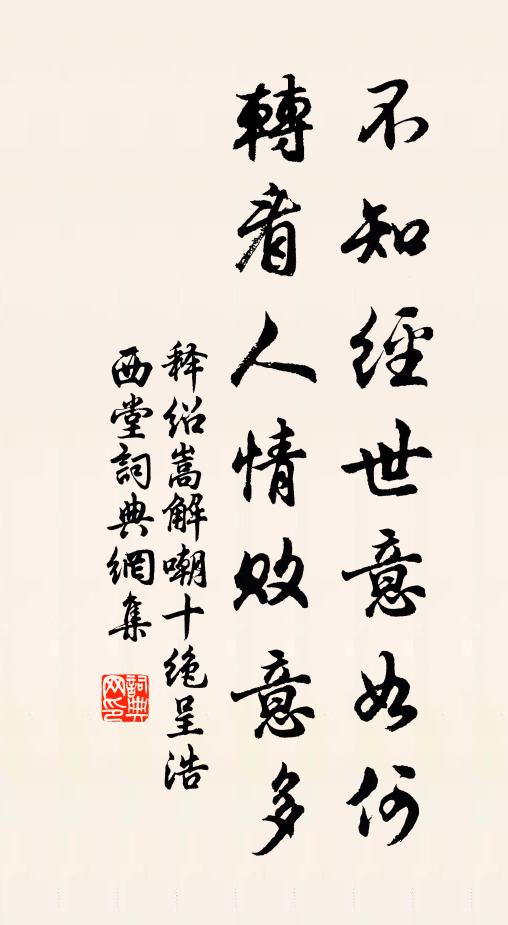 不知經世意如何
轉看人情敗意多
释绍嵩解嘲十绝呈浩
西堂詞典網集
詞典网印